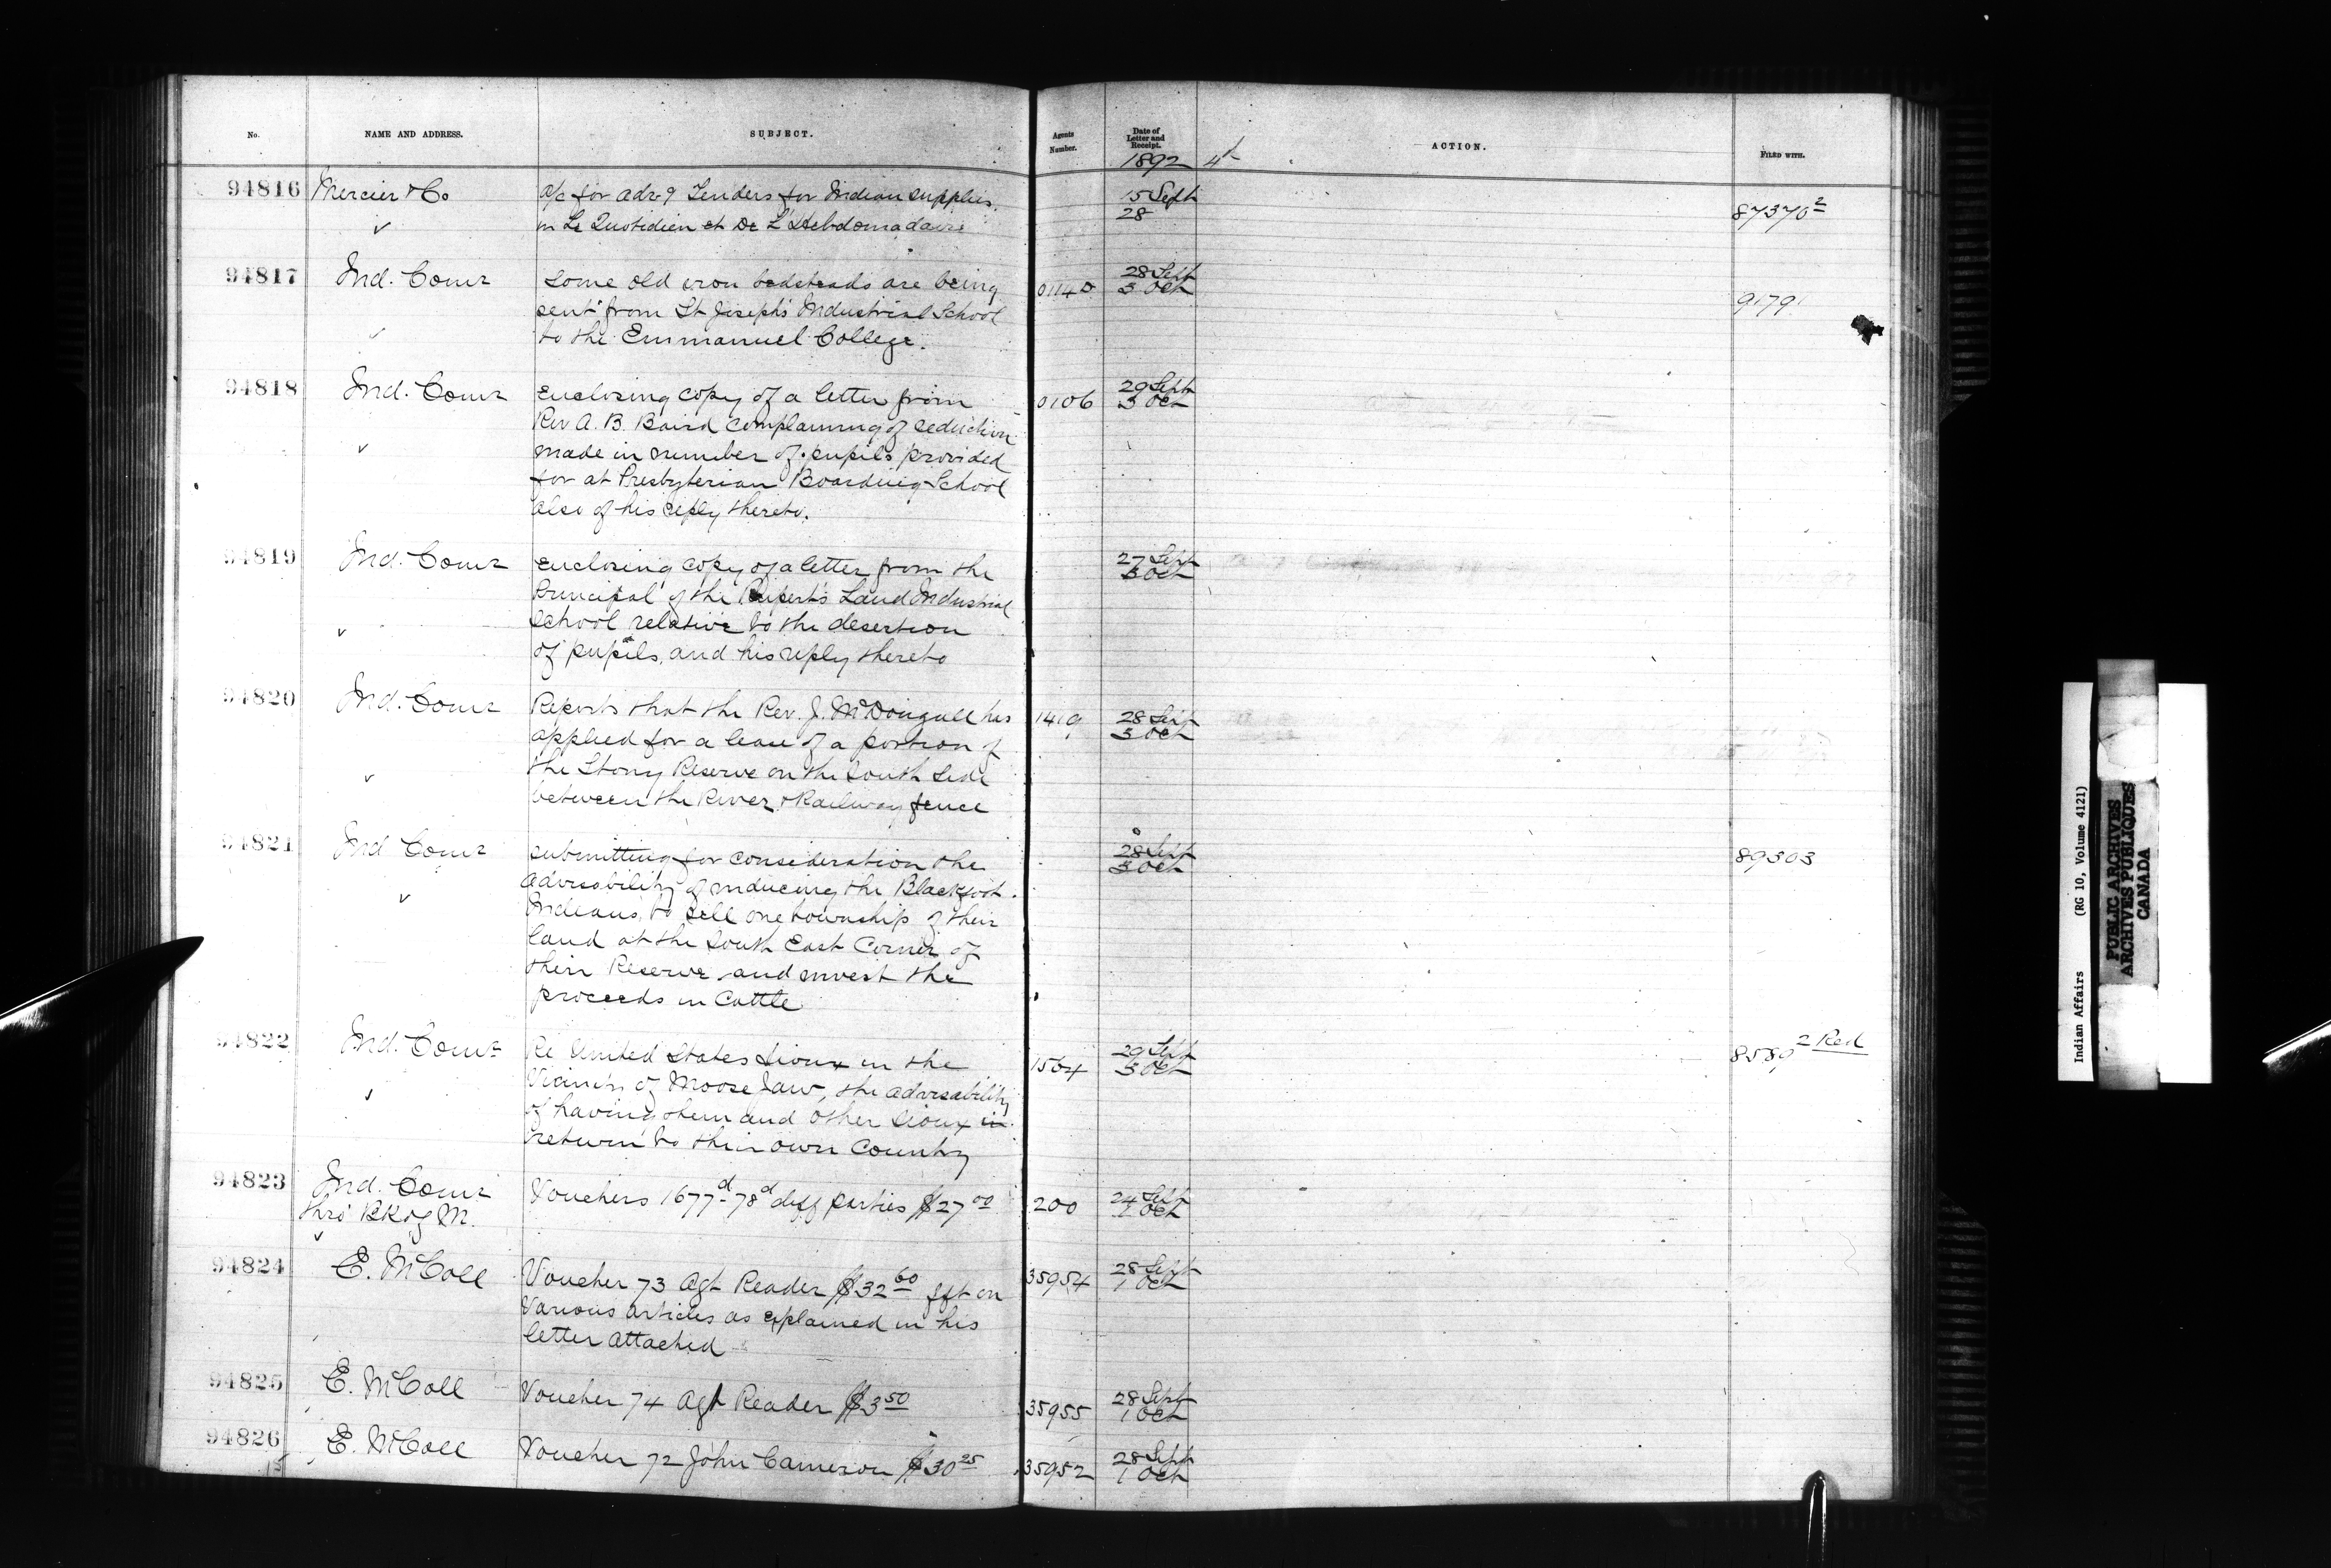 No.
NAME AND ADDRESS.
SUBJECT.
Agents
Number.
Date of
Letter and
Receipt.
1892
ACTION.
FILED WITH.
94816 Mercier & Co
a/c for adv of Tenders for Indian supplies
in Le Quotidien et De L'Hebdomadaire
15 Sept
28
87370 2
94817 Ind. Comr
Some old iron bedsteads are being
sent from St Joseph's Industrial School
to the Emmanuel College.
28 Sept
3 Oct
9179
94818 Ind. Comr
Enclosing copy of a letter from
Rev A. B. Baird complaining of reduction
made in number of pupils provided
for at Presbyterian Boarding School
also of his reply thereto.
0106
29 Sept
3 Oct
94819 Ind. Comr
Enclosing copy of a letter from the
Principal of the Rupert's Land Industrial
School relative to the desertion
of pupils, and his reply thereto
27 Sept
3 Oct
94820 Ind. Comr
Reports that the Rev. J. McDougall has
applied for a lease of a portion of
the Stony Reserve on the South Side
between the River & Railway fence
1419
28 Sept
3 Oct
94821 Ind Comr
submitting for consideration the
advisability of inducing the Blackfoot
Indians to sell one township of their
land at the South East Corner of
their Reserve and invest the
proceeds in Cattle
28 Sept
3 Oct
89303
94822 Ind. Comr
Re United States Sioux in the
Vicinity of Moose Jaw, the advisability
of having them and other Sioux in
return to their own Country
1564
29 Sept
3 Oct
8589 2 Red
94823 Ind. Comr
thro' BK of M.
Vouchers 1677d-78d diff parties $27 00
200
24 Sept
1 Oct
94824 E. McColl
Voucher 73 Agt Reader $32 60 fft on
Various articles as explained in his
letter attached
35954
28 Sept
1 Oct
94825 E. McColl
Voucher 74 Agt Reader $3 50
35955
28 Sept
1 Oct
94826 E. McColl
Voucher 72 John Cameron $30 25
35952
28 Sept
1 Oct
Indian Affairs (RG 10, Volume 4121)
PUBLIC ARCHIVES
ARCHIVES PUBLIQUES
CANADA